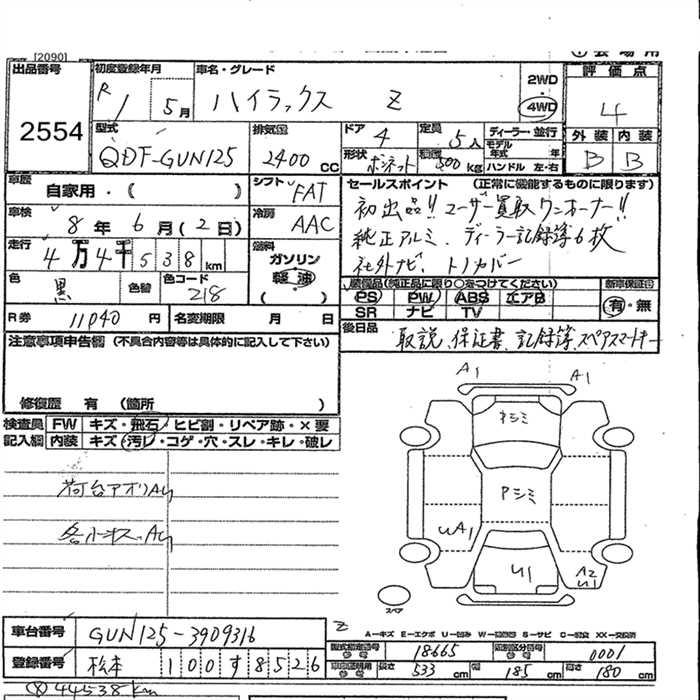 [2090]
出品番号
2554
初度登録年月
R 1 5月
車名・グレード
ハイラックス Z
2WD
4WD
評価点
4
外装 内装
B B
型式
QDF-GUN125
排気量
2400 CC
ドア 4
定員 5人
ディーラー・並行
モデル年式 年式
形状 ボンネット
積載 500kg
ハンドル 左・右
車歴
自家用・( )
シフト FAT
車検
8年 6月(2日)
冷房 AAC
走行
4万4千538km
燃料
ガソリン
軽油
( )
色 黒
色替
色コード 218
R券 11040円
名変期限 月 日
セールスポイント (正常に機能するものに限ります)
初出品!! ユーザー買取ワンオーナー!!
純正アルミ、ディーラー記録簿6枚
社外ナビ、トノカバー
装備品(純正品に限り○をつけてください)
新車保証書
PS PW ABS エアB
有・無
SR ナビ TV
後日品
取説、保証書、記録簿、スペアスマートキー
注意事項申告欄 (不具合内容等は具体的に記入して下さい)
修復歴 有 (箇所 )
検査員記入欄
FW キズ・飛石・ヒビ割・リペア跡・×要
内装 キズ・汚レ・コゲ・穴・スレ・キレ・破レ
荷台アオリAU
各小キス、AU
A1 A1
ネジミ
Pシミ
UA1
U1
A2
U1
スペア
Z
A−キズ E−エクボ U−凹み W−補修跡 S−サビ C−腐食 XX−交換済
車台番号 GUN125-3909316
登録番号 松本 100す8526
型式指定番号 18665
類別区分番号 0001
長さ 533cm
幅 185cm
高さ 180cm
⑧44538km